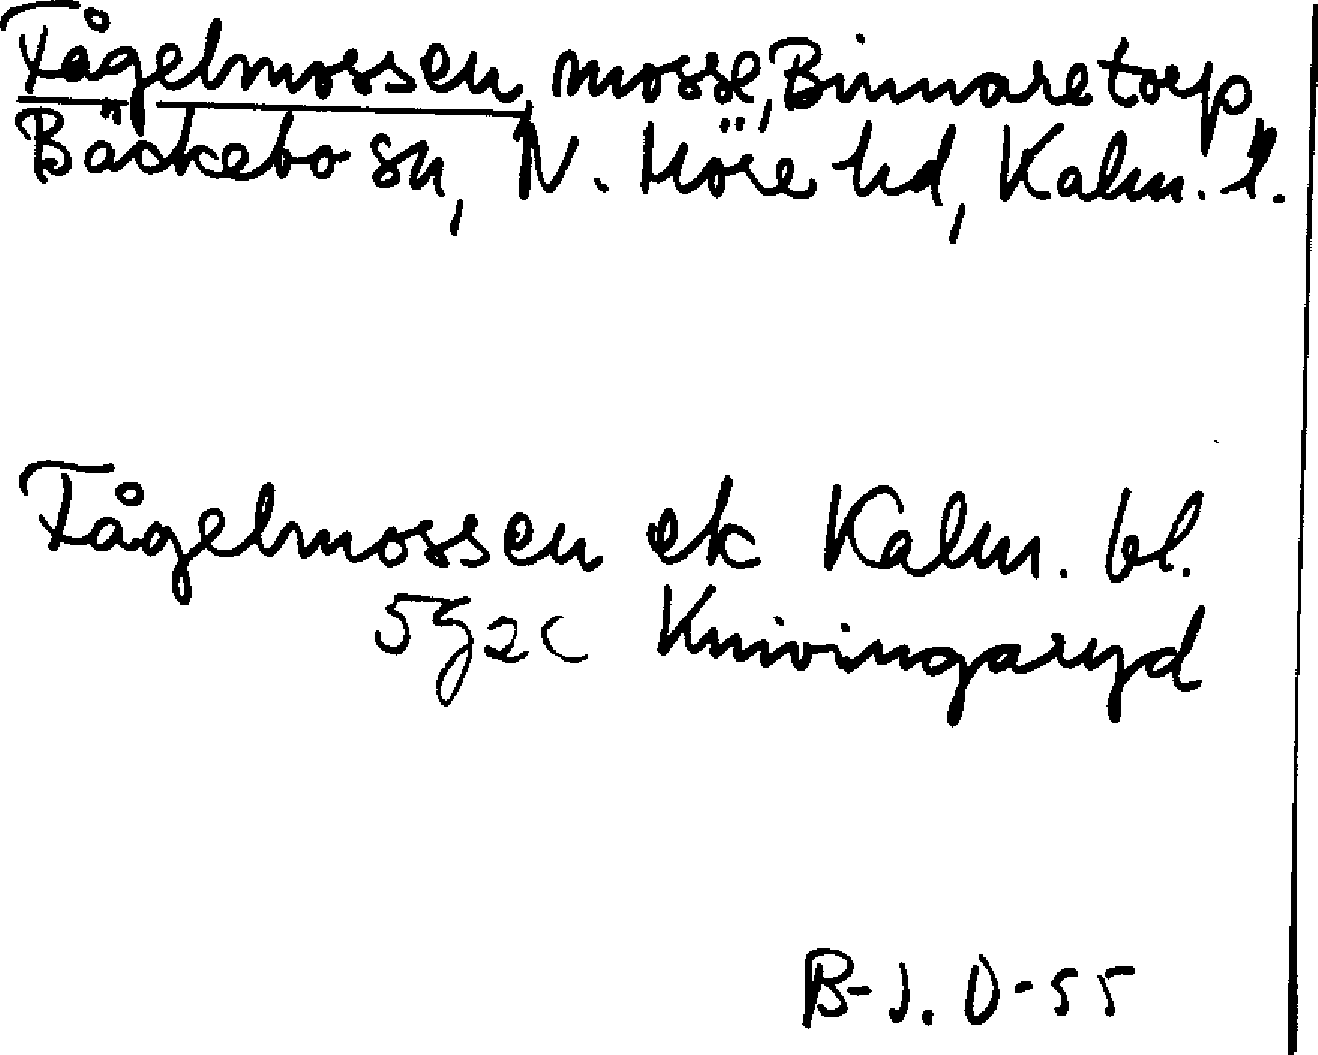 Fågelmossen, mosse, Binnaretorp,
Bäckebo sn, N. Möre hd, Kalm. l.
Fågelmossen ek Kalm. bl.
5g2c Knivingaryd
B-J. O-55